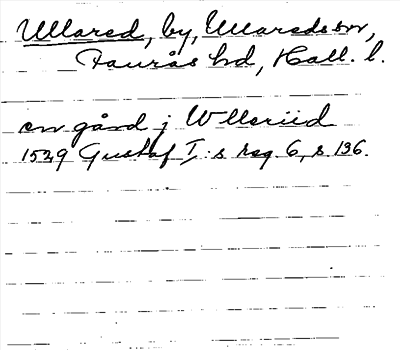 Ullared, by, Ullareds sn,
Faurås hd, Hall. l.
en gård j Wllariid
1529 Gustaf I:s reg. 6, s. 136.